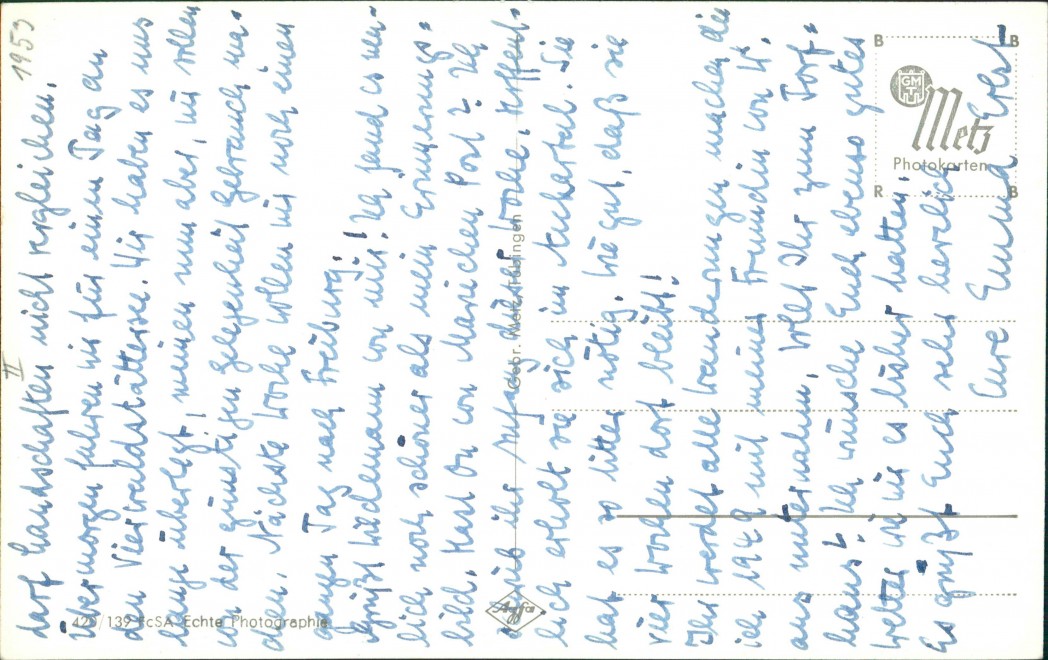 1953
II
darf Landschaften nicht vergleichen.
Übermorgen fahren wir für einen Tag an
den Vierwaldstättersee. Wir haben es uns
lange überlegt, meinen nun aber, wir sollen
von der günstigen Gelegenheit Gebrauch ma-
chen. Nächste Woche wollen wir noch einen
ganzen Tag nach Freiburg!
Grüßt Wildemann von mir! Ich fand es neu-
lich noch schöner als mein Erinnerungs-
bild. Hast Du von Mariechen Post? Ich
schrieb ihr Anfang dieser Woche. Hoffent-
lich erholt sie sich im Neckartal. Sie
hat es so bitter nötig. Wie gut, daß sie
vier Wochen dort bleibt!
Ihr werdet alle Wanderungen machen, die
ich 194 mit meiner Freundin von W.
aus unternahm. Wollt Ihr zum Torf-
haus? Ich wünsche Euch ebenso gutes
Wetter wie wir es bisher hatten.
Es grüßt Euch sehr herzlich
Eure Emmi Erbst
B B
GM
T
Metz
Photokarten
R B
Gebr. Metz, Tübingen
Agfa
425/139 FcSA Echte Photographie